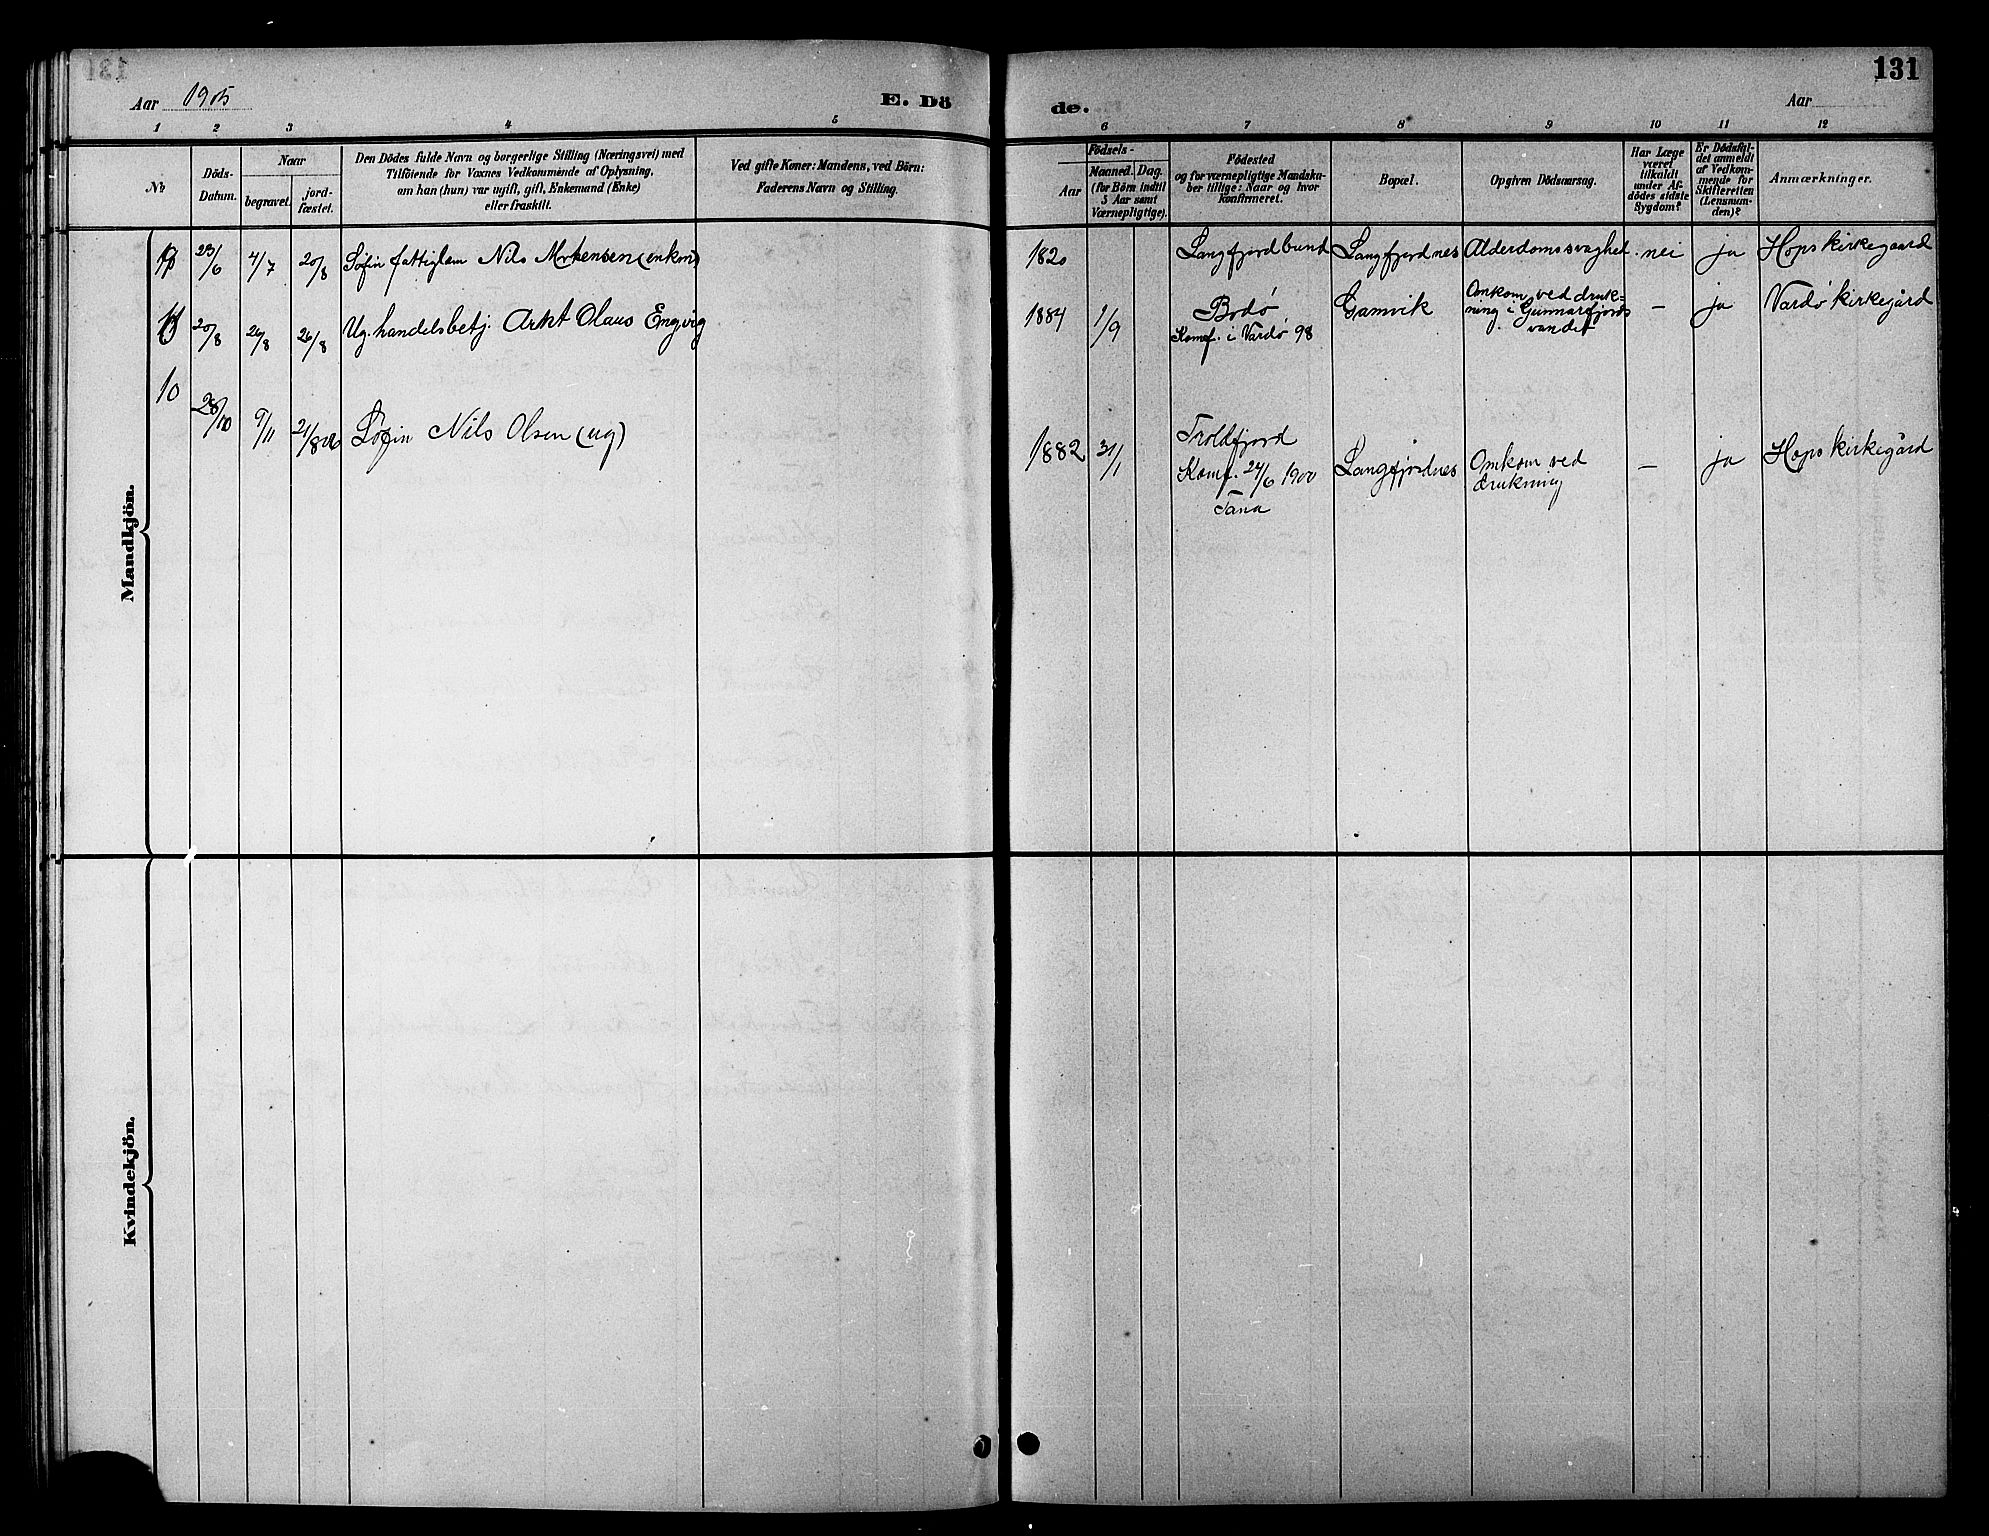 131
Aar 1905
E. Dö
de.
Aar
1 2 3 4 5
6 7 8 9 10 11 12
No
Döds-
Datum.
Naar
begravet.
jord-
fæstet.
Den Dödes fulde Navn og borgerlige Stilling (Næringsvei) med
Tilföiende for Voxnes Vedkommende af Oplysning,
om han (hun) var ugift, gift, Enkemand (Enke)
eller fraskilt.
Ved gifte Koner: Mandens, ved Börn:
Faderens Navn og Stilling.
Födsels-
Aar
Maaned. Dag.
(for Börn indtil
5 Aar samt
Værnepligtige).
Födested
og for værnepligtige Mandska-
ber tillige: Naar og hvor
konfirmeret.
Bopæl.
Opgiven Dödsaarsag.
Har Læge
været
tilkaldt
under Af-
dödes sidste
Sygdom?
Er Dödsfal-
det anmeldt
af Vedkom-
mende for
Skifteretten
(Lensman-
den)?
Anmærkninger.
Mandkjön.
23/6 4/7 20/8 Søfin fattiglem Nils Mortensen (enkem) 1820 Langfjordbund Langfjordnes Alderdomssvaghed nei ja Hops kirkegaard
20/8 26/8 26/8 Ug. handelsbetj. Arnt Olaus Engvig 1884 1/9 Bodø Gamvik Omkom ved druk- — ja Vardø kirkegård
Konf. i Vardø 98 ning i Gunnarfjords
vandet
10 28/10 9/11 21/8 06 Søfin Nils Olsen (ug) 1882 31/1 Troldfjord
Konf. 24/6 1900 Langfjordnes Omkom ved — ja Hops kirkegård
Tana drukning
Kvindekjön.